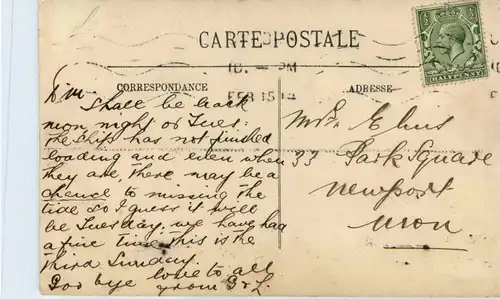 CARTE POSTALE
HALFPENNY
PM
FEB 15 14
CORRESPONDANCE
ADRESSE
Shall be back
mon night or Tues:
the ship has not finished
loading and even when
they are, there may be a
chance to missing the
tide so I guess it will
be Tuesday. we have had
a fine time this is the
third Sunday.
Good bye love to all
from G & L.
Mrs. Ellis
33 Park Square
Newport
Mon